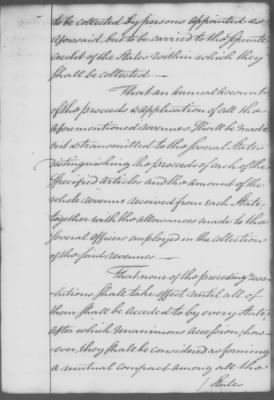 to be collected by persons appointed as
aforesaid, but to be carried to the separate
credit of the States within which they
shall be collected.—
That an annual Account
of the proceeds & application of all the
aforementioned revenues shall be made
out & transmitted to the several States
distinguishing the proceeds of each of the
specified articles and the amount of the
whole revenue received from each State,
together with the allowances made to the
several officers employed in the collection
of the said revenues.—
That none of the preceding reso-
lutions shall take effect until all of
them shall be acceded to by every State,
after which unanimous accession, how-
ever, they shall be considered as forming
a mutual compact among all the
States